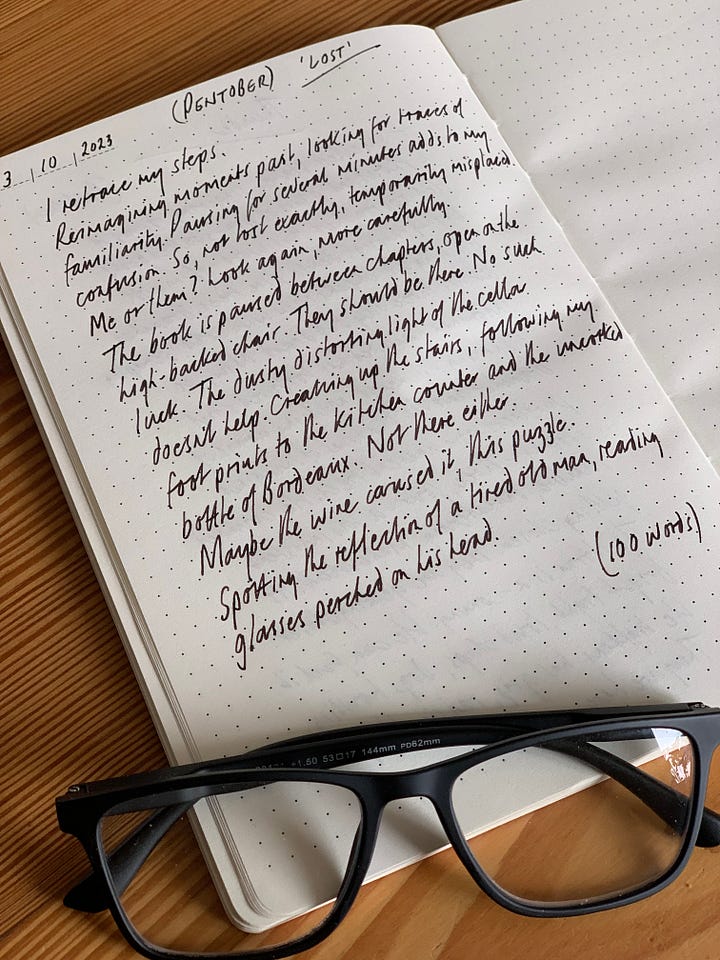 (PENTOBER) 'LOST'
3 | 10 | 2023
I retrace my steps.
Reimagining moments past, looking for traces of
familiarity. Pausing for several minutes adds to my
confusion. So, not lost exactly, temporarily misplaced.
Me or them? Look again, more carefully.
The book is paused between chapters, open on the
high-backed chair. They should be there. No such
luck. The dusty distorting light of the cellar
doesn't help. Creaking up the stairs, following my
foot prints to the kitchen counter and the uncorked
bottle of Bordeaux. Not there either.
Maybe the wine caused it, this puzzle.
Spotting the reflection of a tired old man, reading
glasses perched on his head.
(100 words)
+1.50 53□17 144mm PD62mm